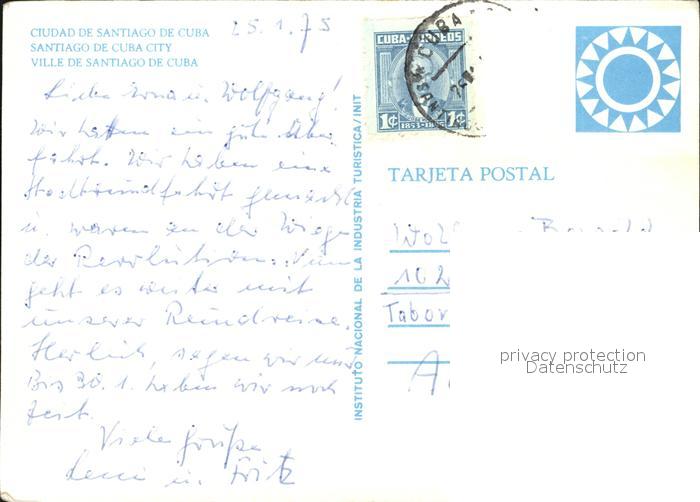 CIUDAD DE SANTIAGO DE CUBA
SANTIAGO DE CUBA CITY
VILLE DE SANTIAGO DE CUBA
25.1.75
Liebe Erna u. Wolfgang!
Wir hatten ein gute Über
fahrt. Wir haben eine
Stadtrundfahrt gemacht
u. waren an der Wiege
der Revolution. Nun
geht es weiter mit
unserer Rundreise.
Herrlich, sagen wir nur
Bis 30.1. haben wir noch
Zeit.
Viele Grüße
Leni u. Fritz
INSTITUTO NACIONAL DE LA INDUSTRIA TURISTICA/INIT
CUBA CORREOS
1¢ 1¢
1853-
CUBA
TARJETA POSTAL
Wol
102
Tabor
A
privacy protection
Datenschutz